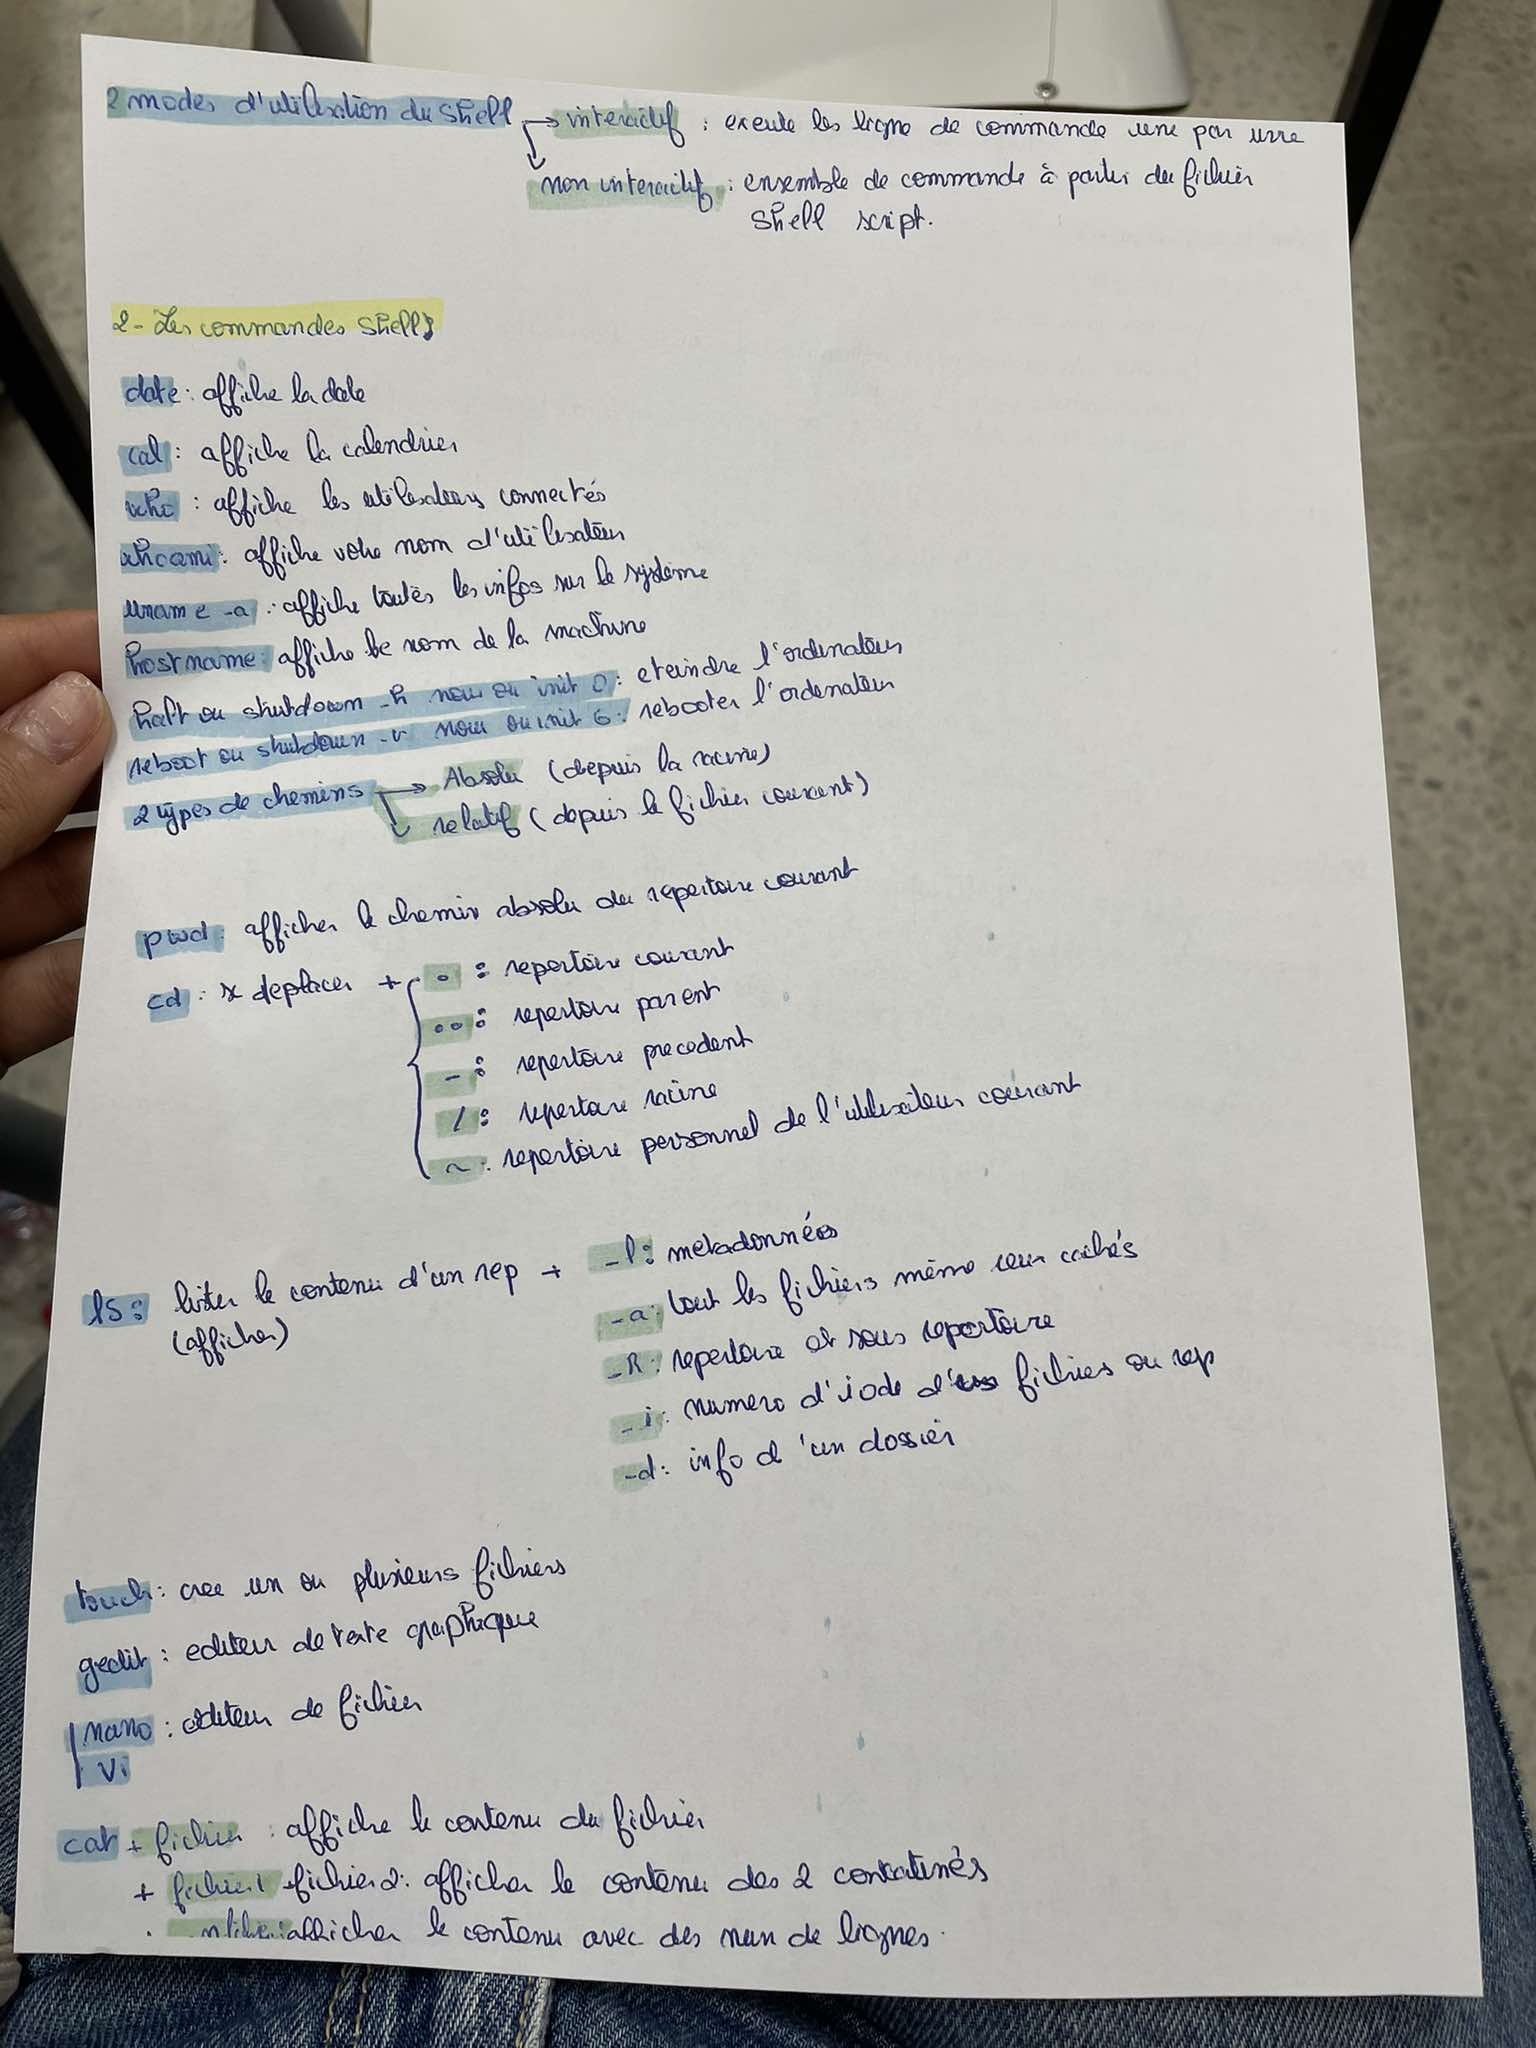 2 modes d'utilisation du Shell → interactif : execute les ligne de commande une par une
non interactif : ensemble de commande à partir du fichier
Shell script.
2- Les commandes Shell
date : affiche la date
cal : affiche la calendrier
who : affiche les utilisateurs connectés
whoami : affiche votre nom d'utilisateur
uname -a : affiche toutes les infos sur le système
hostname : affiche le nom de la machine
halt ou shutdown -h now ou init 0 : eteindre l'ordenateur
reboot ou shutdown -r now ou init 6 : rebooter l'ordenateur
2 types de chemins → Absolu (depuis la racine)
relatif (depuis le fichier courant)
pwd : afficher le chemin absolu du repertoire courant
cd : se deplacer + . : repertoire courant
.. : repertoire parent
- : repertoire precedent
/ : repertoire racine
~ : repertoire personnel de l'utilisateur courant
ls : lister le contenu d'un rep + -l : metadonnées
(afficher)
-a : tout les fichiers même ceux cachés
-R : repertoire et sous repertoire
-i : numero d'iode d'un fichiers ou rep
-d : info d'un dossier
touch : cree un ou plusieurs fichiers
gedit : editeur de texte graphique
nano : editeur de fichier
vi
cat + fichier : affiche le contenu du fichier
+ fichier1 fichier2 : afficher le contenu des 2 concatinés
afficher le contenu avec des num de lignes.